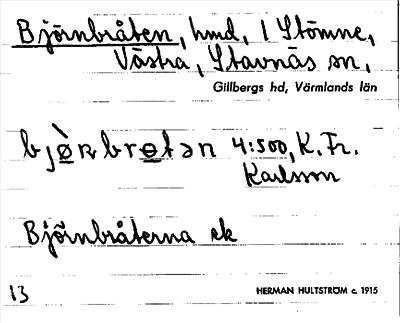 Björnbråten, hmd, 1 Stömne,
Västra, Stavnäs sn,
Gillbergs hd, Värmlands län
bjø̀ɳbrɵtən 4:500, K. Fr.
Karlsson
Björnbråterna ek
13
HERMAN HULTSTRÖM c. 1915